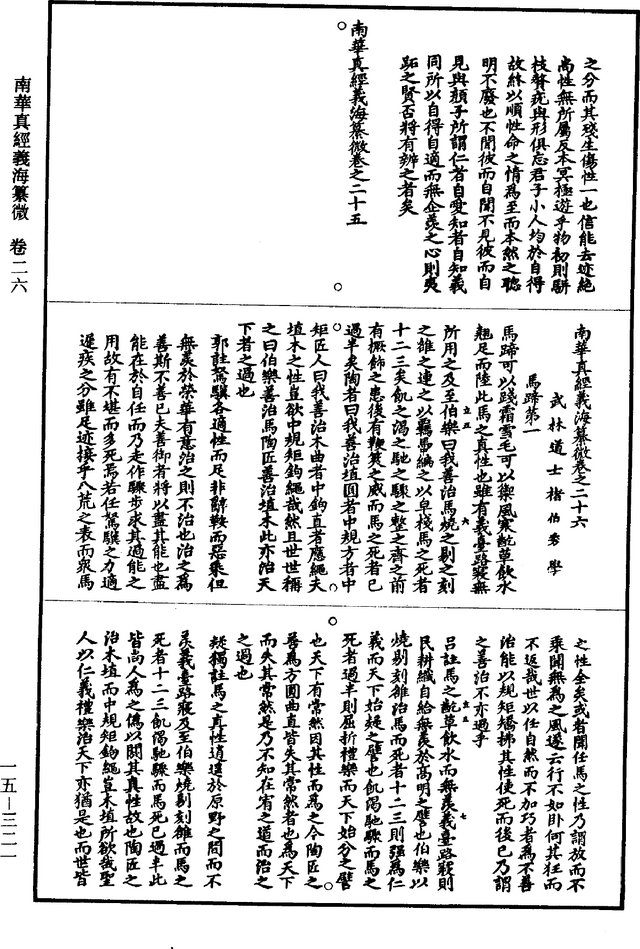 南華真經義海纂微　卷二六
之分而其殘生傷性一也信能去迹絕
尚性無所屬反本冥極遊乎物初則駢
枝贅疣與形俱忘君子小人均於自得
故終以順性命之情為至而本然之聰
明不廢也不聞彼而自聞不見彼而自
見與顏子所謂仁者自愛知者自知義
同所以自得自適而無企羨之心則夷
跖之賢否將有辨之者矣
南華真經義海纂微卷之二十五
南華真經義海纂微卷之二十六
武林道士褚伯秀學
馬蹄第一
馬蹄可以踐霜雪毛可以禦風寒齕草飲水
翹足而陸此馬之真性也雖有義臺路寢無
所用之及至伯樂曰我善治馬燒之剔之刻
之雒之連之以羈馽編之以皁棧馬之死者
十二三矣飢之渴之馳之驟之整之齊之前
有橛飾之患後有鞭筴之威而馬之死者已
過半矣陶者曰我善治埴圓者中規方者中
矩匠人曰我善治木曲者中鉤直者應繩夫
埴木之性豈欲中規矩鉤繩哉然且世世稱
之曰伯樂善治馬陶匠善治埴木此亦治天
下者之過也
郭註駑驥各適性而足非辭鞍而惡乘但
無羨於榮華有意治之則不治也治之為
善斯不善已夫善御者將以盡其能也盡
能在於自任而乃走作驟步求其過能之
用故有不堪而多死焉若任駑驥之力適
遲疾之分雖足迹接乎八荒之表而衆馬
之性全矣或者聞任馬之性乃謂放而不
乘聞無為之風遂云行不如卧何其往而
不返哉世以任自然而不加巧者為不善
治能以規矩矯拂其性使死而後已乃謂
之善治不亦過乎
呂註馬之齕草飲水而無羨義臺路寢則
民耕織自給無羨於高明之譬也伯樂以
燒剔刻雒治馬而死者十二三則強為仁
義而天下始疑之譬也飢渴馳驟而馬之
死者過半則屈折禮樂而天下始分之譬
也天下有常然因其性而為之今陶匠之
善為方圓曲直皆失其常然者也為天下
而失其常然是乃不知在宥之道而治之
之過也
疑獨註馬之真性逍遥於原野之間而不
羨義臺路寢及至伯樂燒剔刻雒而馬之
死者十二三飢渴馳驟而馬死已過半此
皆尚人為之偽以闕其真性故也陶匠之
治木埴而中規矩鉤繩豈木埴所欲哉聖
人以仁義禮樂治天下亦猶是也而世皆
一五—三二一